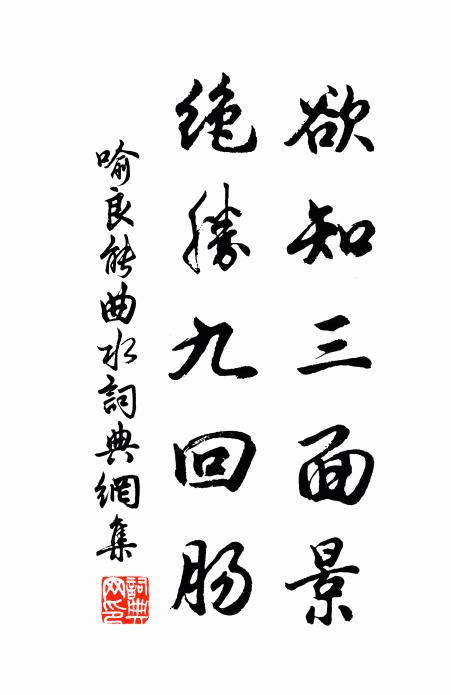 欲知三面景
绝勝九回肠
喻良能曲水詞典網集
詞典網印